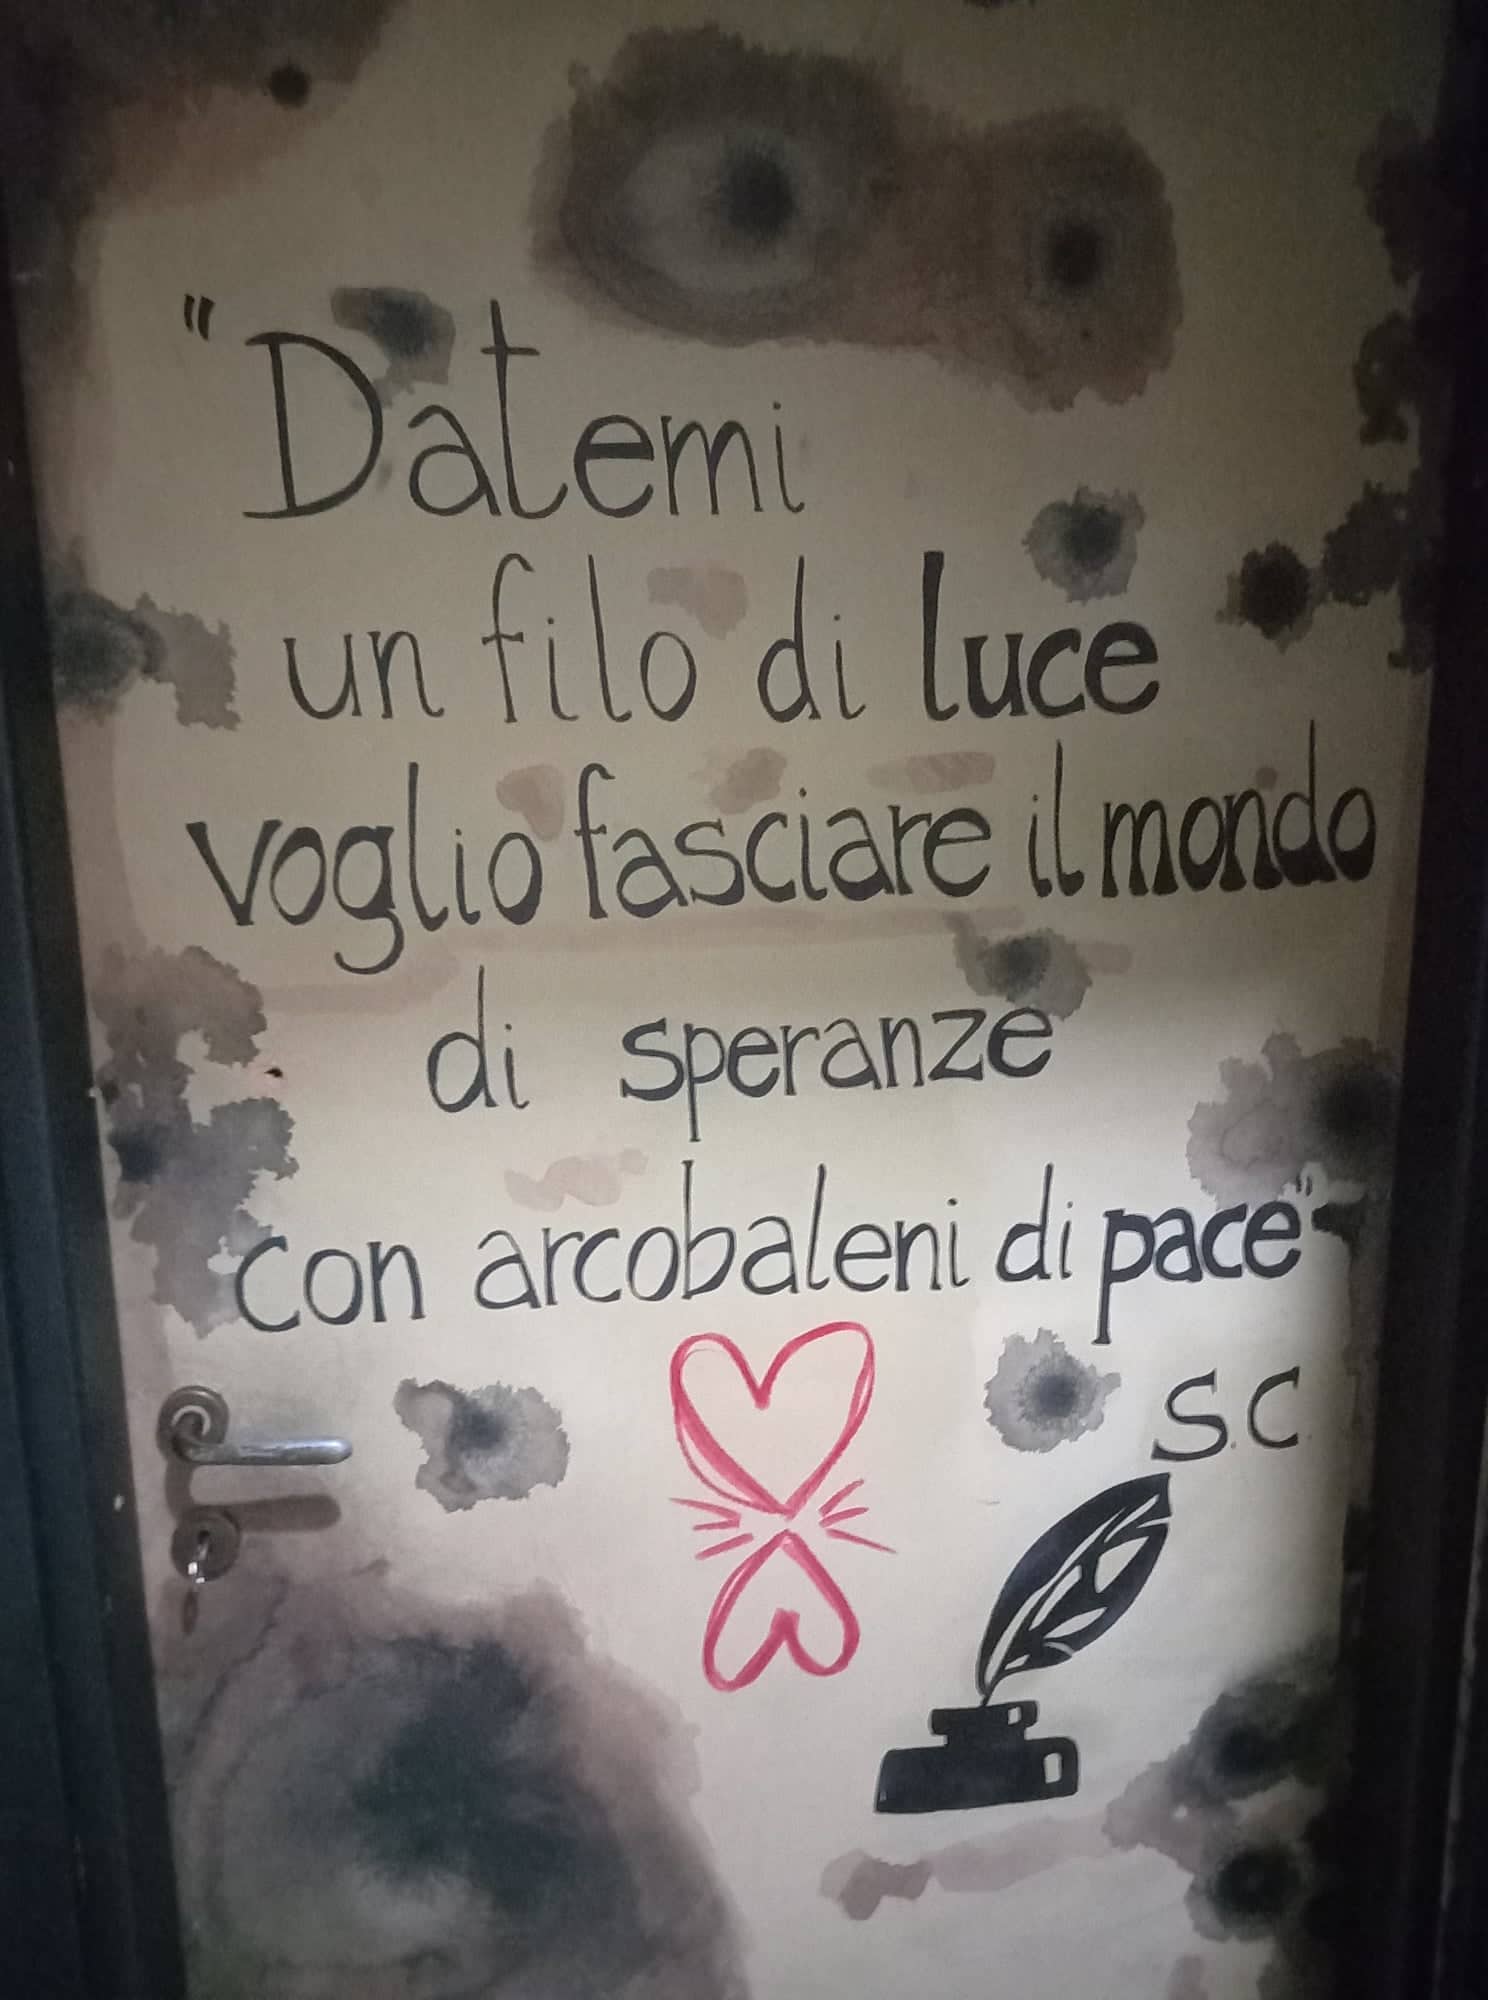 "Datemi
un filo di luce
voglio fasciare il mondo
di speranze
con arcobaleni di pace"
S.C.